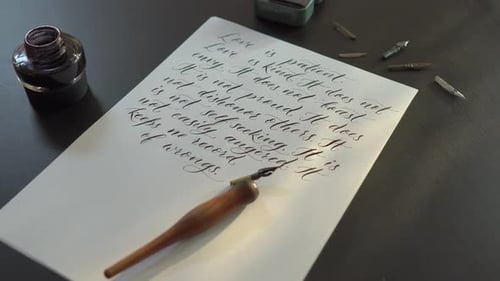 Love is patient.
Love is kind. It does not
envy. It does not boast.
It is not proud. It does
not dishonor others. It
is not self-seeking. It is
not easily angered. It
keeps no record
of wrongs.